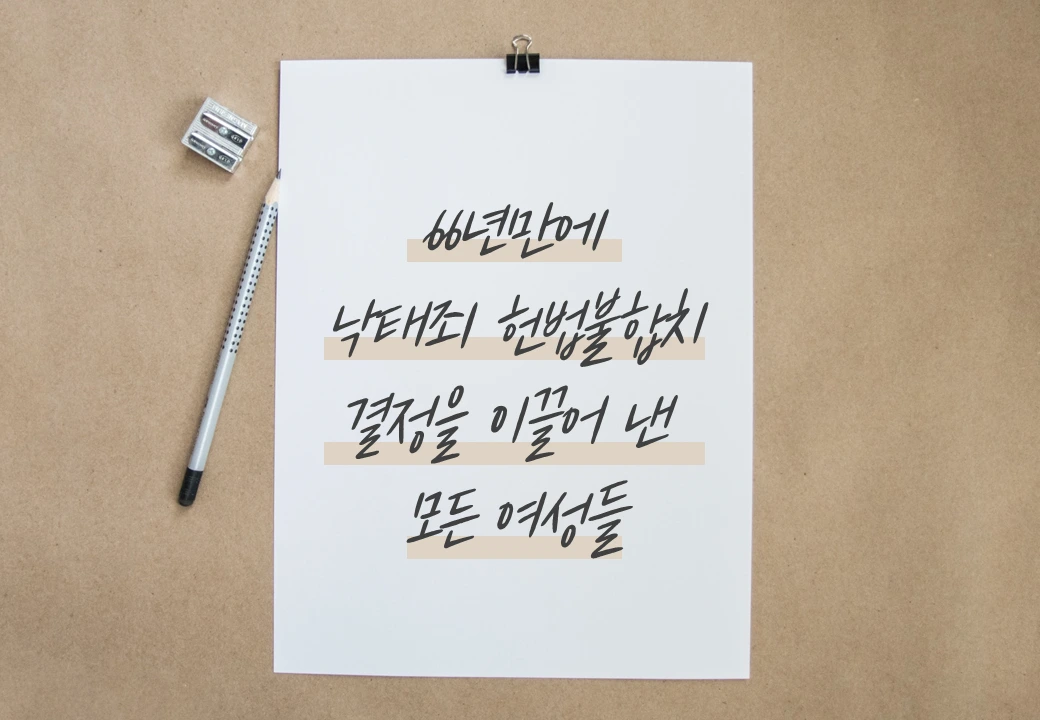 66년만에
낙태죄 헌법불합치
결정을 이끌어 낸
모든 여성들